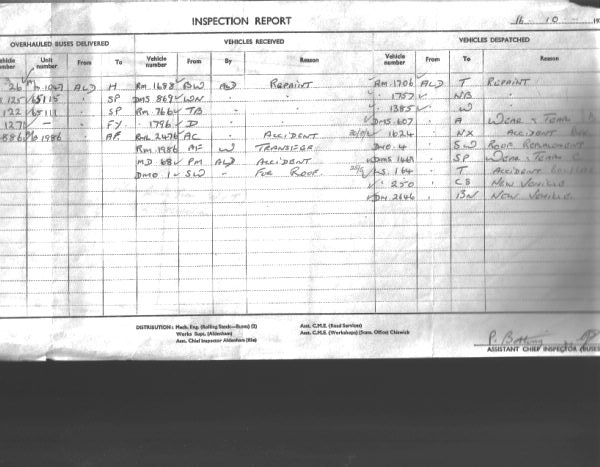 INSPECTION REPORT 16 10
OVERHAULED BUSES DELIVERED VEHICLES RECEIVED VEHICLES DESPATCHED
number Unit number From To Vehicle number From By Reason Vehicle number From To Reason
26 1067 ALD H RM 1688 BW ALD REPAINT RM 1706 ALD T REPAINT
125 65115 " SP DMS 869 WN " " " 1757 " NB "
122 65111 " SP RM 766 TB " " " 1385 " W "
127 — " FY " 1796 D " " DMS 607 " A WEAR & TEAR
886 1986 " AF RML 2476 AC ACCIDENT 1624 " NX ACCIDENT
RM 1986 AF W TRANSFER DMO 4 " SW ROOF REPLACEMENT
MD 68 PM ALD ACCIDENT DMS 1469 " SP WEAR & TEAR
DMO 1 SW " FOR ROOF LS. 164 " T ACCIDENT
" 250 " CS NEW VEHICLE
DM 2646 " BN NEW VEHICLE
DISTRIBUTION: Mech. Eng. (Rolling Stock—Buses) (2) Asst. C.M.E. (Road Services)
Works Supt. (Aldenham) Asst. C.M.E. (Workshops) (Stats. Office) Chiswick
Asst. Chief Inspector Aldenham (File)
ASSISTANT CHIEF INSPECTOR (BUSES